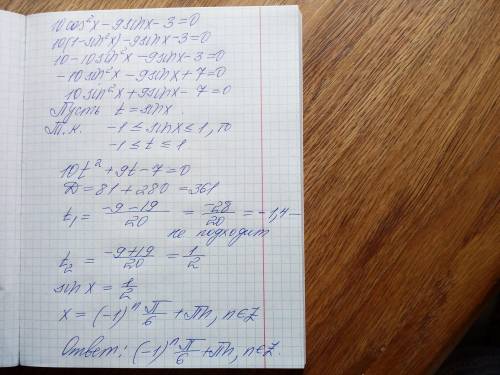 10cos²x - 9sinx - 3 = 0
10(1-sin²x) - 9sinx - 3 = 0
10 - 10sin²x - 9sinx - 3 = 0
-10sin²x - 9sinx + 7 = 0
10sin²x + 9sinx - 7 = 0
Пусть t = sinx
Т.к. -1 ≤ sinx ≤ 1, то
-1 ≤ t ≤ 1
10t² + 9t - 7 = 0
D = 81 + 280 = 361
t₁ = (-9-19)/20 = -28/20 = -1,4 —
не подходит
t₂ = (-9+19)/20 = 1/2
sin x = 1/2
x = (-1)ⁿ π/6 + πn, n∈Z
Ответ: (-1)ⁿ π/6 + πn, n∈Z.